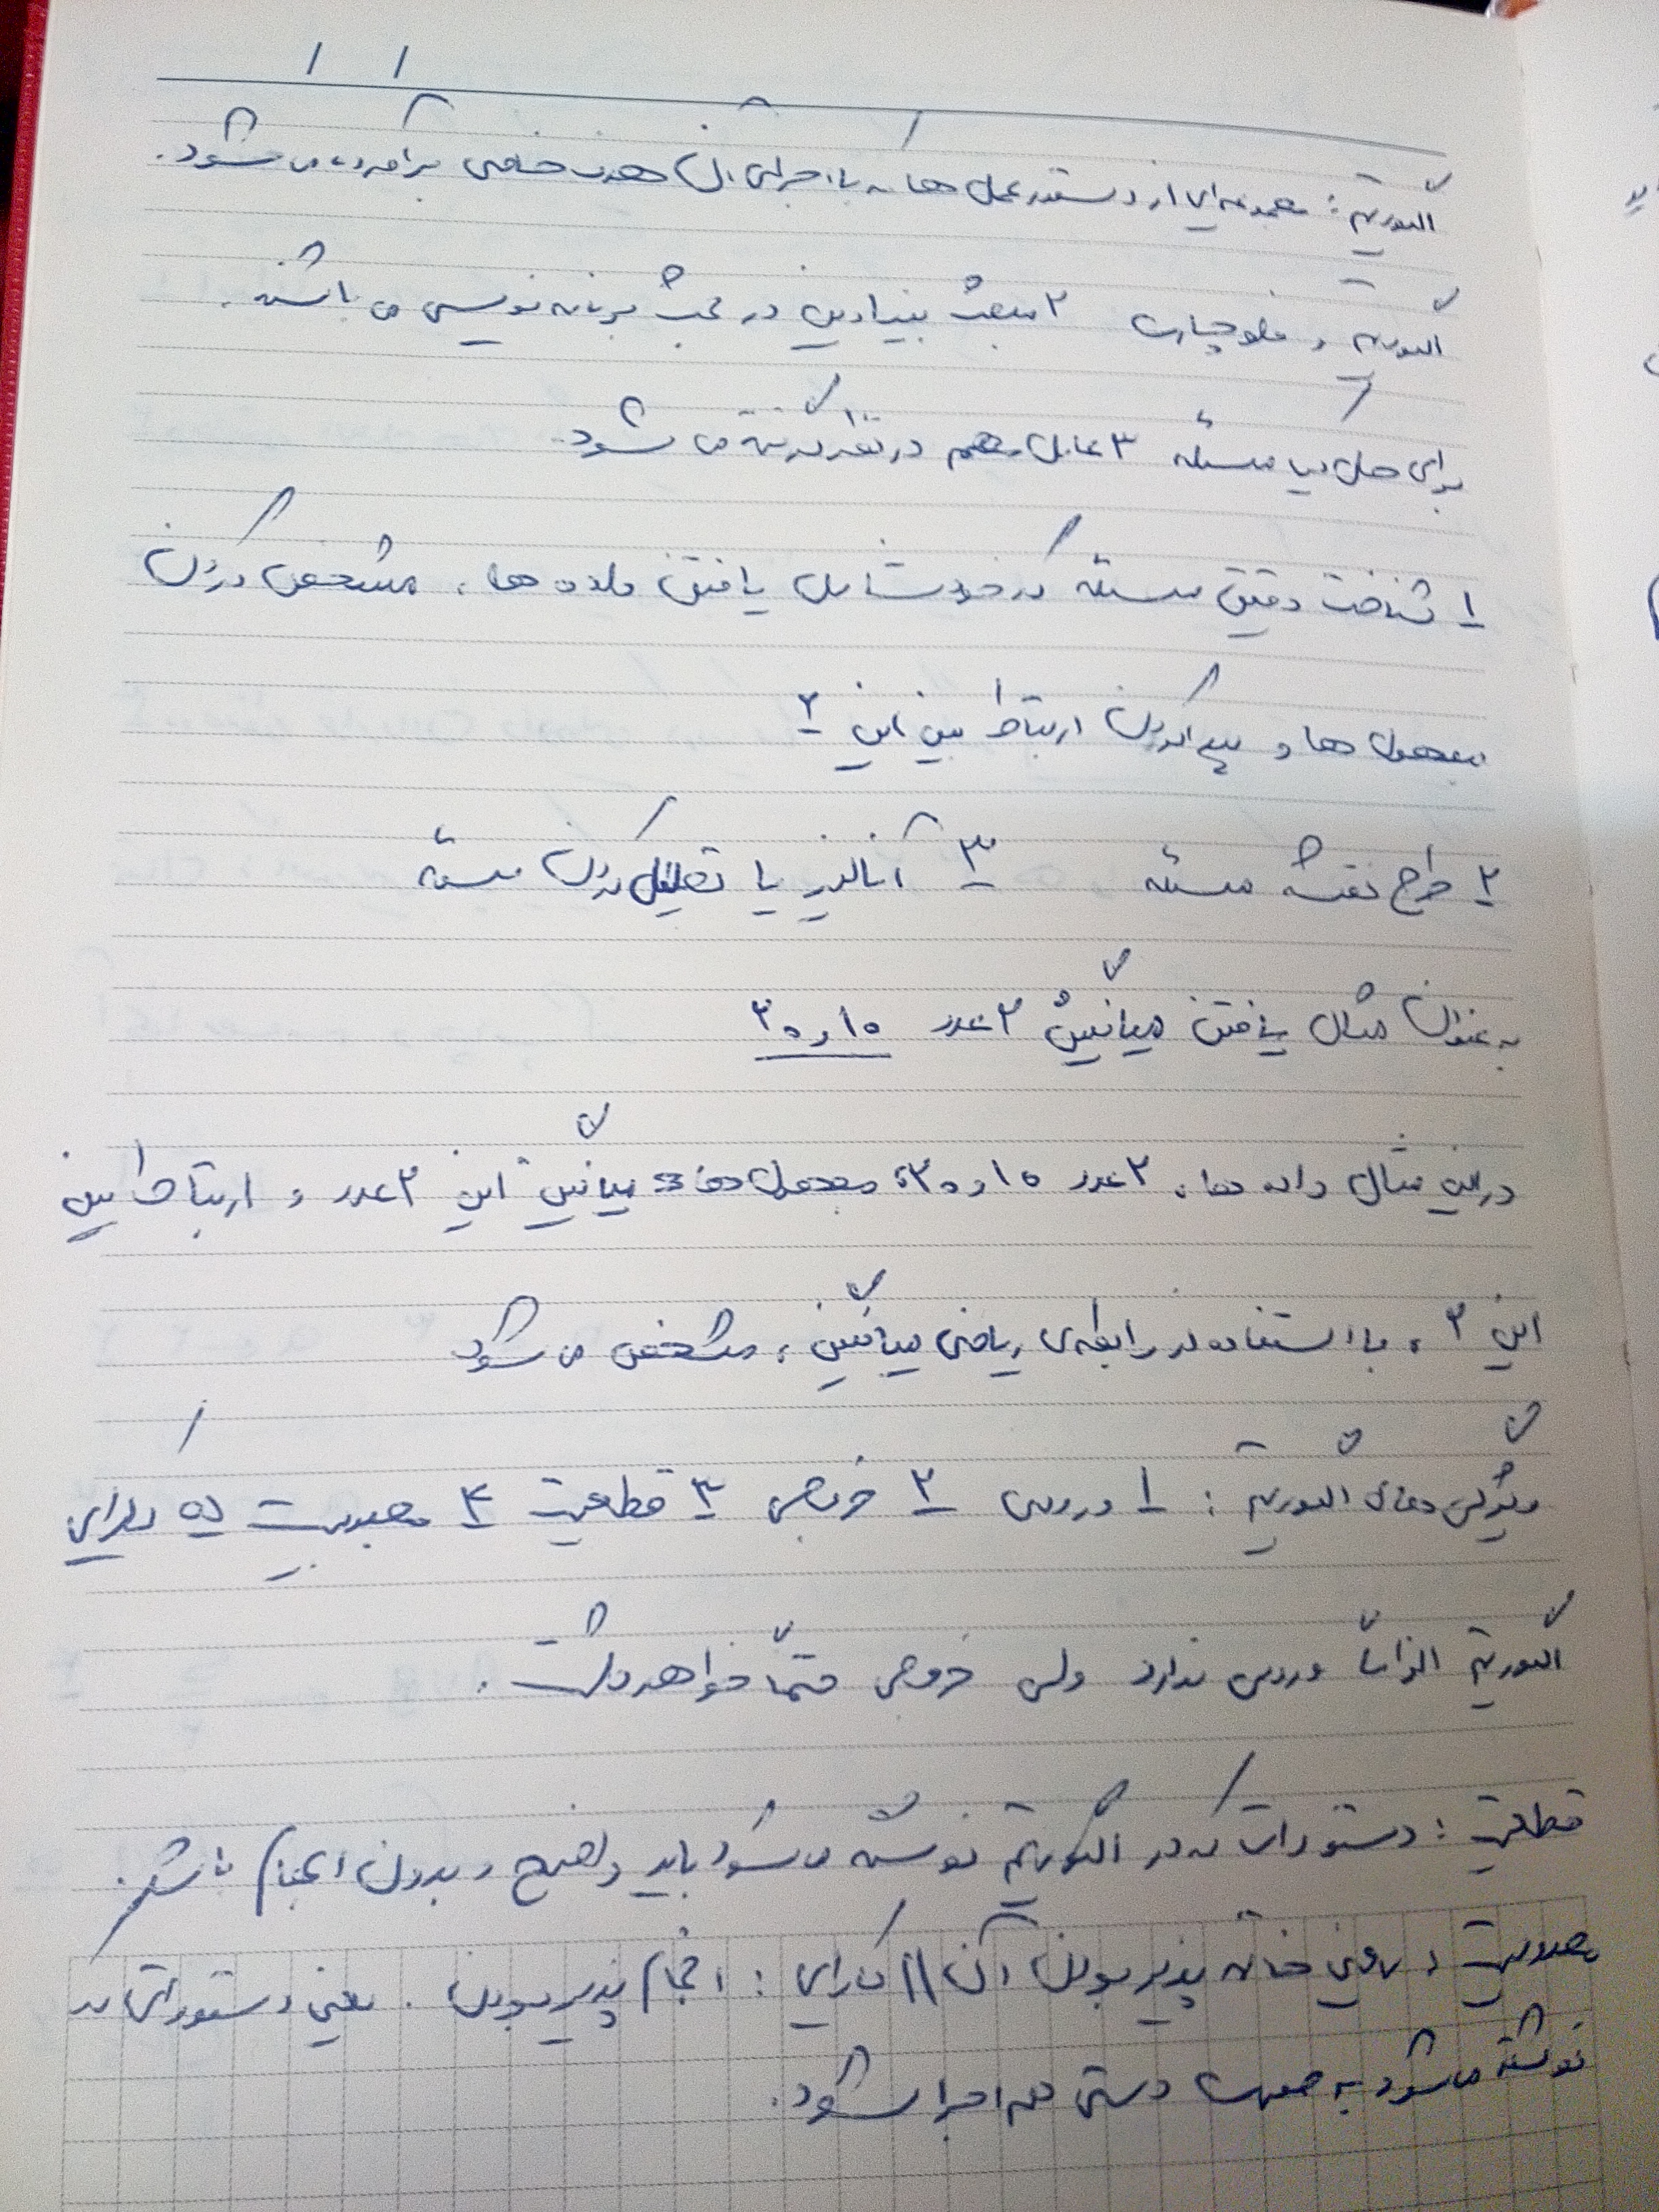 الگوریتم: مجموعه‌ای از دستورعمل ها که با اجرای آن هدف خاصی برآورده می شود.
الگوریتم و فلوچارت ۲ مبحث بنیادین در بحث برنامه نویسی می باشند.
برای حل یک مسئله ۳ عامل مهم در نظر گرفته می شود.
۱ شناخت دقیق مسئله که خود شامل یافتن داده ها، مشخص کردن
مجهول ها و پیدا کردن ارتباط بین این ۲
۲ طرح نقشه مسئله ۳ آنالیز یا تحلیل کردن مسئله
به عنوان مثال یافتن میانگین ۲ عدد ۱۰ و ۲۰
در این مثال داده ها، ۲ عدد ۱۰ و ۲۰، مجهول ها = میانگین این ۲ عدد و ارتباط بین
این ۲، با استفاده از رابطه‌ی ریاضی میانگین، مشخص می شود
ویژگی های الگوریتم: ۱ ورودی ۲ خروجی ۳ قطعیت ۴ محدودیت ۵ کارایی
الگوریتم الزاماً ورودی ندارد ولی خروجی حتماً خواهد داشت.
قطعیت: دستوراتی که در الگوریتم نوشته می شود باید واضح و بدون ابهام باشد.
محدودیت: یعنی خاتمه پذیر بودن آن // کارایی: انجام پذیر بودن. یعنی دستوراتی که
نوشته می شود به صورت دستی هم اجرا شود.